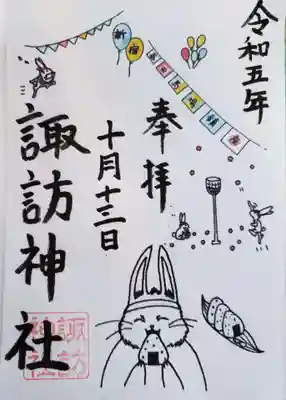 令和五年
奉拝
十月十三日
諏訪神社
新宿
諏訪
神社